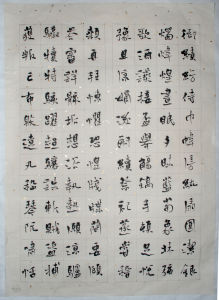 御績紡侍巾帷房紈扇圓潔銀
燭煒煌晝眠夕寐藍筍象床弦
歌酒讌接杯舉觴矯手頓足悅
豫且康嫡後嗣續祭祀蒸嘗稽
顙再拜悚懼恐惶牋牒簡要顧
答審詳骸垢想浴執熱願涼驢
騾犢特駭躍超驤誅斬賊盜捕
獲叛亡布射遼丸嵇琴阮嘯恬